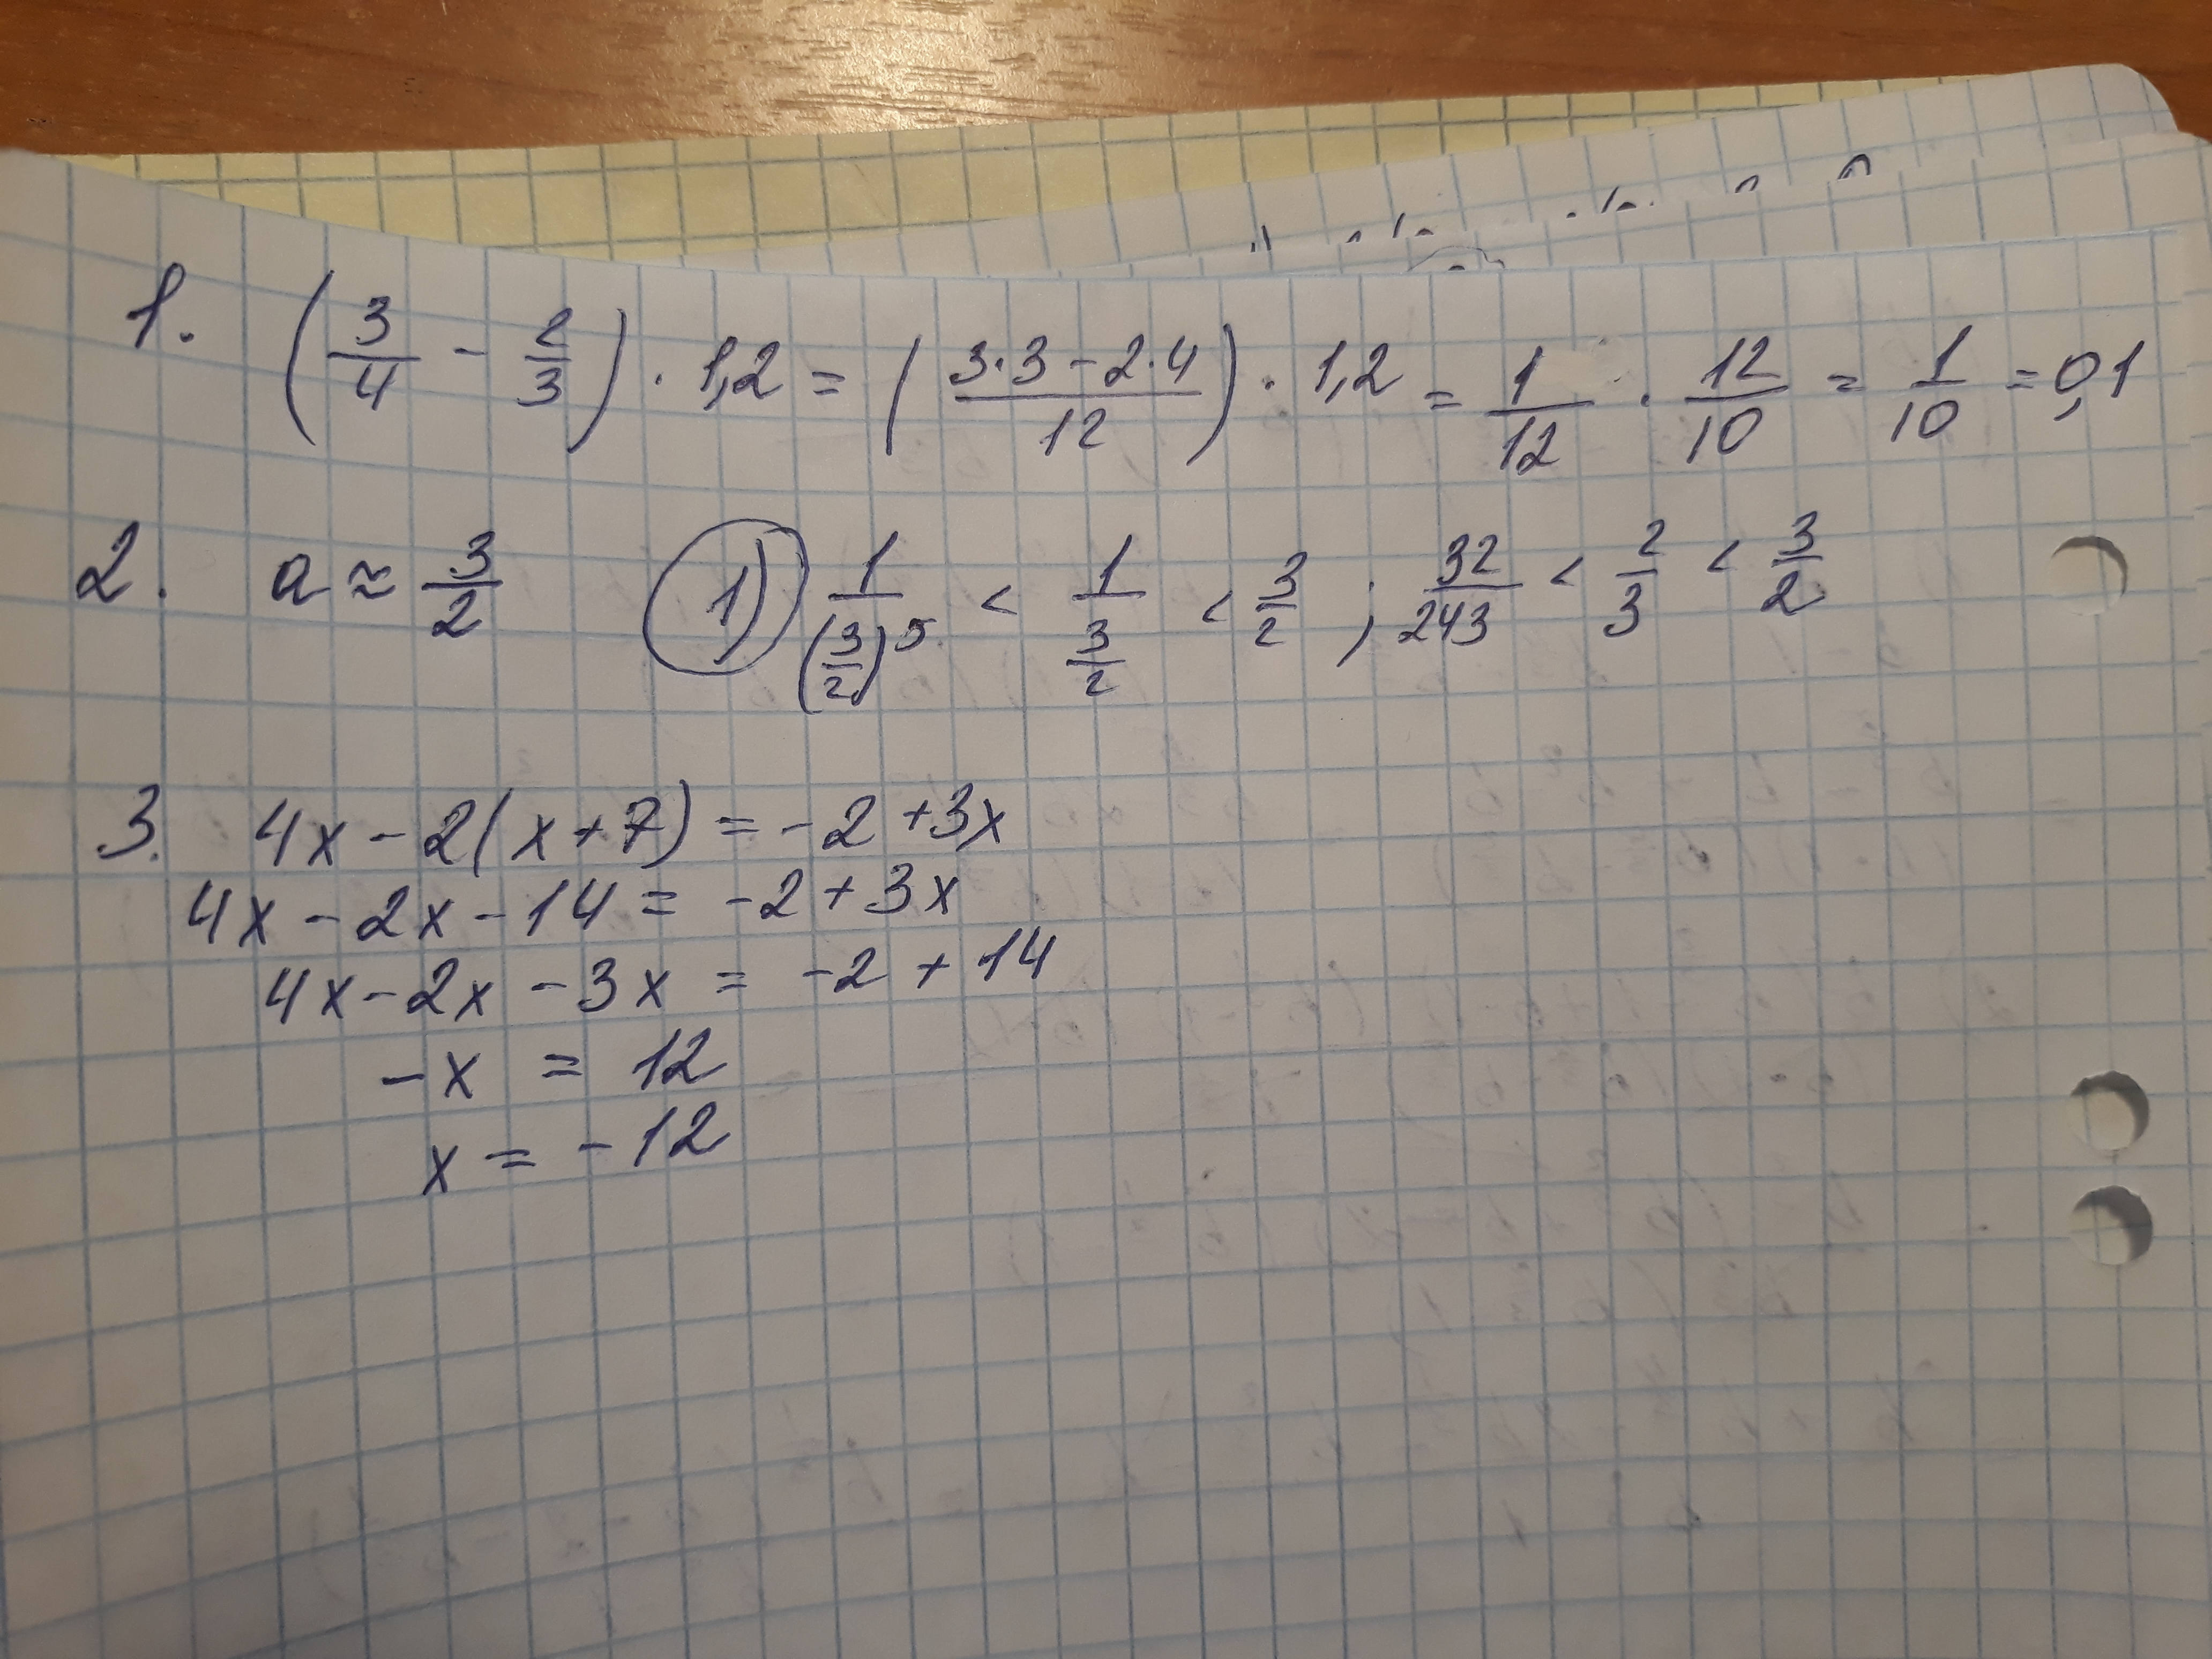 1. (3/4 - 2/3) · 1,2 = (3·3 - 2·4/12) · 1,2 = 1/12 · 12/10 = 1/10 = 0,1
2. a ≈ 3/2 1) 1/(3/2)^5 < 1/(3/2) < 3/2 ; 32/243 < 2/3 < 3/2
3. 4x - 2(x + 7) = -2 + 3x
4x - 2x - 14 = -2 + 3x
4x - 2x - 3x = -2 + 14
-x = 12
x = -12